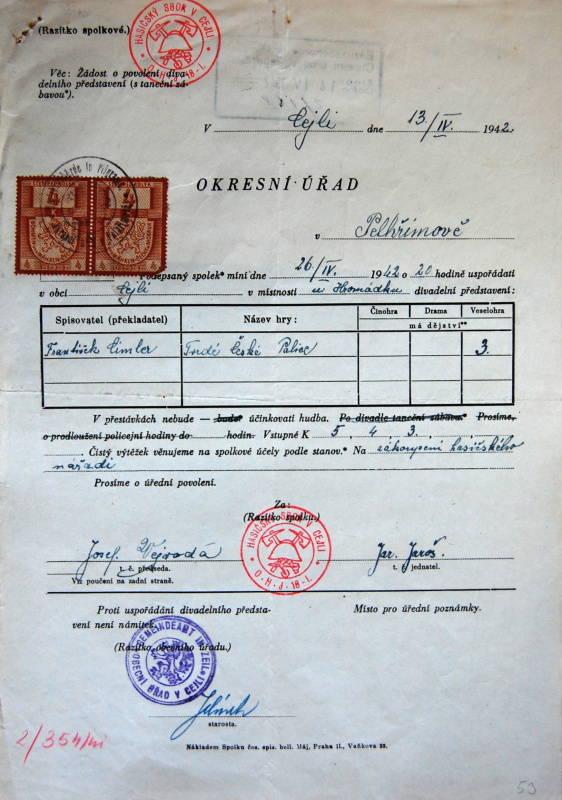 HASIČSKÝ SBOR V CEJLI
O·H·J·18·I.
(Razítko spolkové.)
Věc: Žádost o povolení diva-
delního představení (s taneční zá-
bavou*).
V Cejli dne 13/IV. 1942
OKRESNÍ ÚŘAD
v Pelhřimově
4 K 4 K
Podepsaný spolek* míní dne 26/IV. 1942 o 20 hodině uspořádati
v obci Cejli v místnosti u Hromádků divadelní představení:
Spisovatel (překladatel) Název hry: Činohra Drama Veselohra
má dějství**
František Cimler Tvrdé České Palice 3.
V přestávkách nebude — bude* účinkovati hudba. Po divadle taneční zábava* Prosíme,
o prodloužení policejní hodiny do hodin. Vstupné K 5 4 3
Čistý výtěžek věnujeme na spolkové účely podle stanov.* Na zakoupení hasičského
nářadí
Prosíme o úřední povolení.
Za:
(Razítko spolku.)
HASIČSKÝ SBOR V CEJLI
O·H·J·18·I.
Josef Jar. Jaroš.
t. č. předseda. t. jednatel.
Viz poučení na zadní straně.
Proti uspořádání divadelního předsta-
vení není námitek.
Místo pro úřední poznámky.
(Razítko obecního úřadu.)
GEMEINDEAMT IN ZEIL
OBECNÍ ÚŘAD V CEJLI
Jelínek
starosta.
2/354/ai
Nákladem Spolku čes. spis. bell. Máj, Praha II., Vaňkova 33.
53